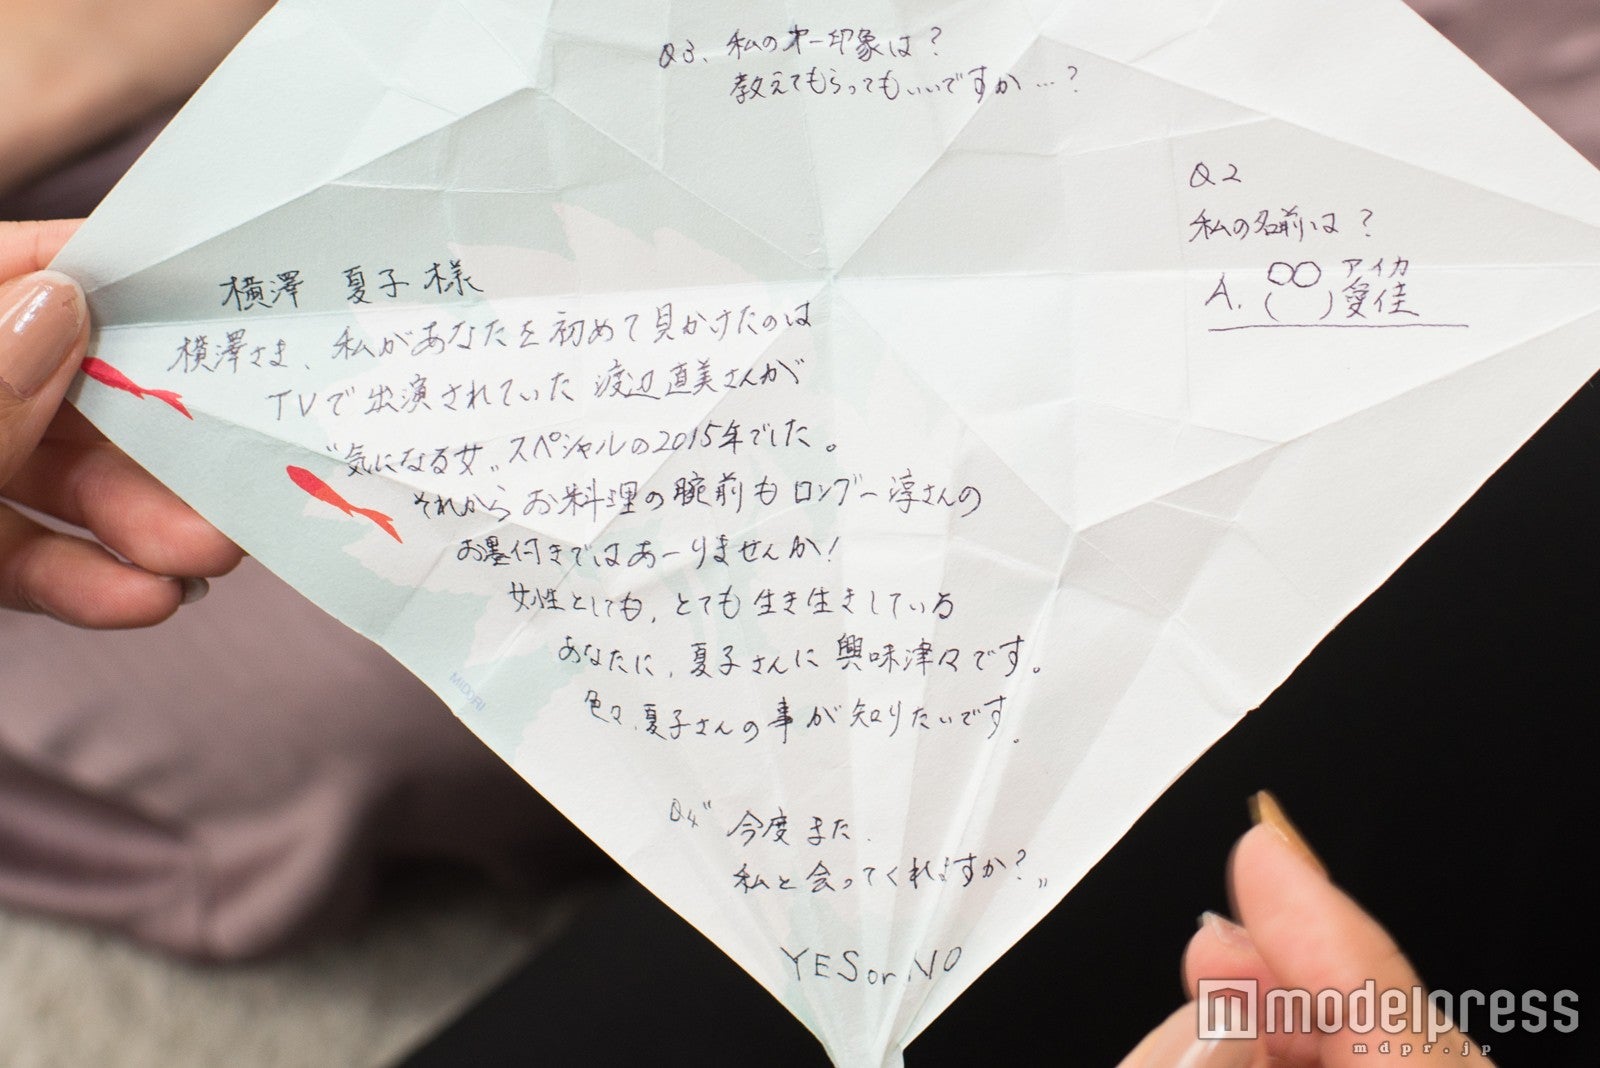 Q3、私の第一印象は？
教えてもらってもいいですか…？
Q2
私の名前は？
アイカ
A. (○○)愛佳
横澤 夏子様
横澤さま、私があなたを初めて見かけたのは
TVで出演されていた渡辺直美さんが
〝気になる女〟スペシャルの2015年でした。
それからお料理の腕前もロンブー淳さんの
お墨付きではあーりませんか！
女性としても、とても生き生きしている
あなたに、夏子さんに興味津々です。
色々、夏子さんの事が知りたいです。
MIDORI
Q4〝今度また、
私と会ってくれますか？〟
YES or NO
modelpress
mdpr.jp